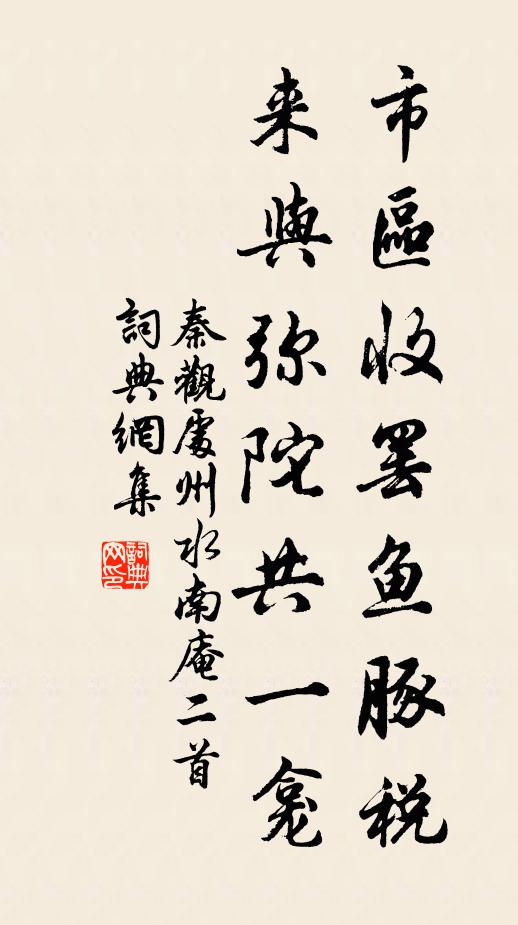 市區收罢鱼豚税
来與弥陀共一龛
秦觀處州水南庵二首
詞典網集
詞典网印